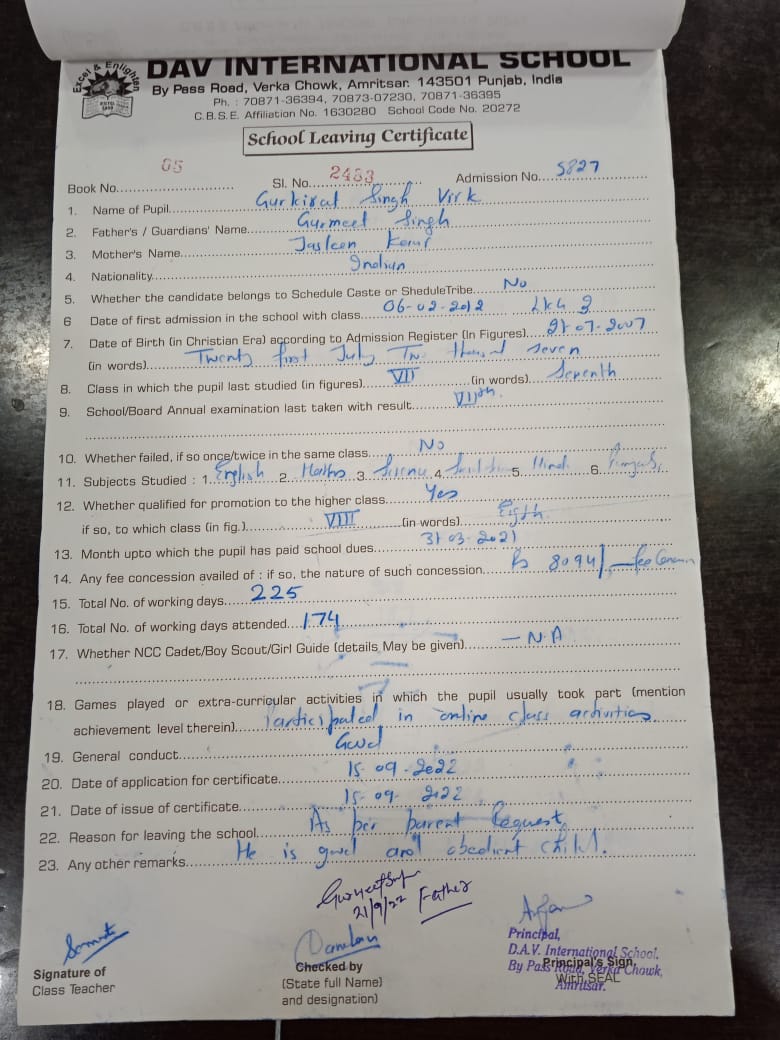 Excel & Enlighten
DAV INTERNATIONAL SCHOOL
By Pass Road, Verka Chowk, Amritsar. 143501 Punjab, India
Ph. : 70871-36394, 70873-07230, 70871-36395
C.B.S.E. Affiliation No. 1630280 School Code No. 20272
School Leaving Certificate
Book No. 05 Sl. No. 2483 Admission No. 5827
1. Name of Pupil Gurkirat Singh Virk
2. Father's / Guardians' Name Gurmeet Singh
3. Mother's Name Jasleen Kaur
4. Nationality Indian
5. Whether the candidate belongs to Schedule Caste or SheduleTribe No
6 Date of first admission in the school with class 06-02-2012 LKG
7. Date of Birth (in Christian Era) according to Admission Register (In Figures) 21-07-2007
(in words) Twenty first July Two thousand seven
8. Class in which the pupil last studied (in figures) VII (in words) Seventh
9. School/Board Annual examination last taken with result VIIth
10. Whether failed, if so once/twice in the same class No
11. Subjects Studied : 1. English 2. Maths 3. Science 4. 5. Hindi 6. Punjabi
12. Whether qualified for promotion to the higher class Yes
if so, to which class (in fig.) VIII (in words) Eigth
13. Month upto which the pupil has paid school dues 31-03-2021
14. Any fee concession availed of : if so, the nature of such concession 8094/ Fee
15. Total No. of working days 225
16. Total No. of working days attended 174
17. Whether NCC Cadet/Boy Scout/Girl Guide (details May be given) — N.A
18. Games played or extra-curricular activities in which the pupil usually took part (mention
achievement level therein) Participated in online class activities
19. General conduct Good
20. Date of application for certificate 15-09-2022
21. Date of issue of certificate 15-09-2022
22. Reason for leaving the school As per parent Request
23. Any other remarks He is good and obedient child.
21/9/22 Father
Signature of
Class Teacher
Checked by
(State full Name)
and designation)
Principal,
D.A.V. International School,
By Pass Road, Verka Chowk,
Amritsar.
Principal's Sign.
With SEAL